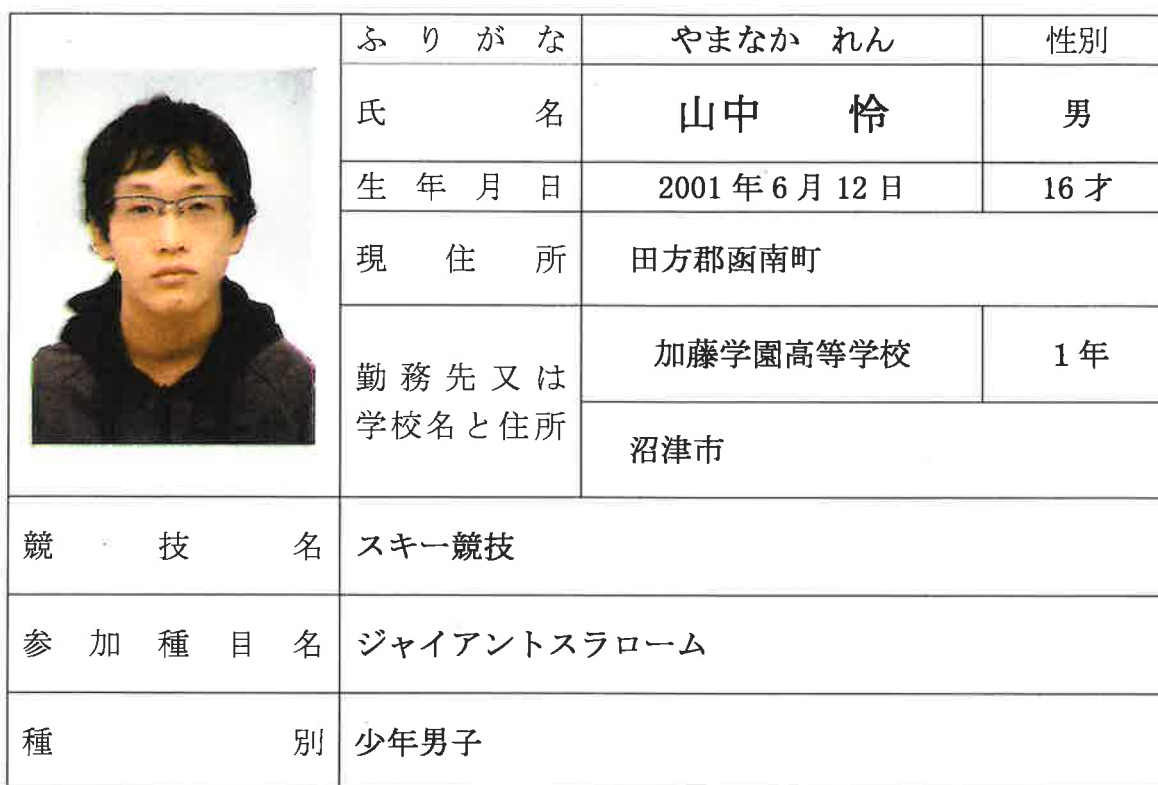 ふりがな やまなか れん 性別
氏名 山中 怜 男
生年月日 2001年6月12日 16才
現住所 田方郡函南町
勤務先又は
学校名と住所
加藤学園高等学校 1年
沼津市
競技名 スキー競技
参加種目名 ジャイアントスラローム
種別 少年男子